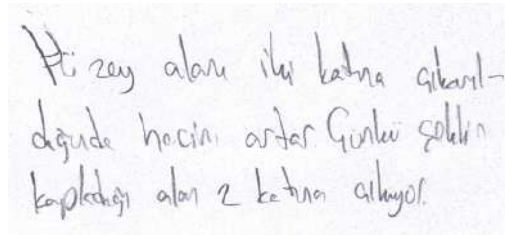 Yüzey alanı iki katına çıkarıl-
dığında hacim artar. Çünkü şeklin
kapladığı alan 2 katına çıkıyor.